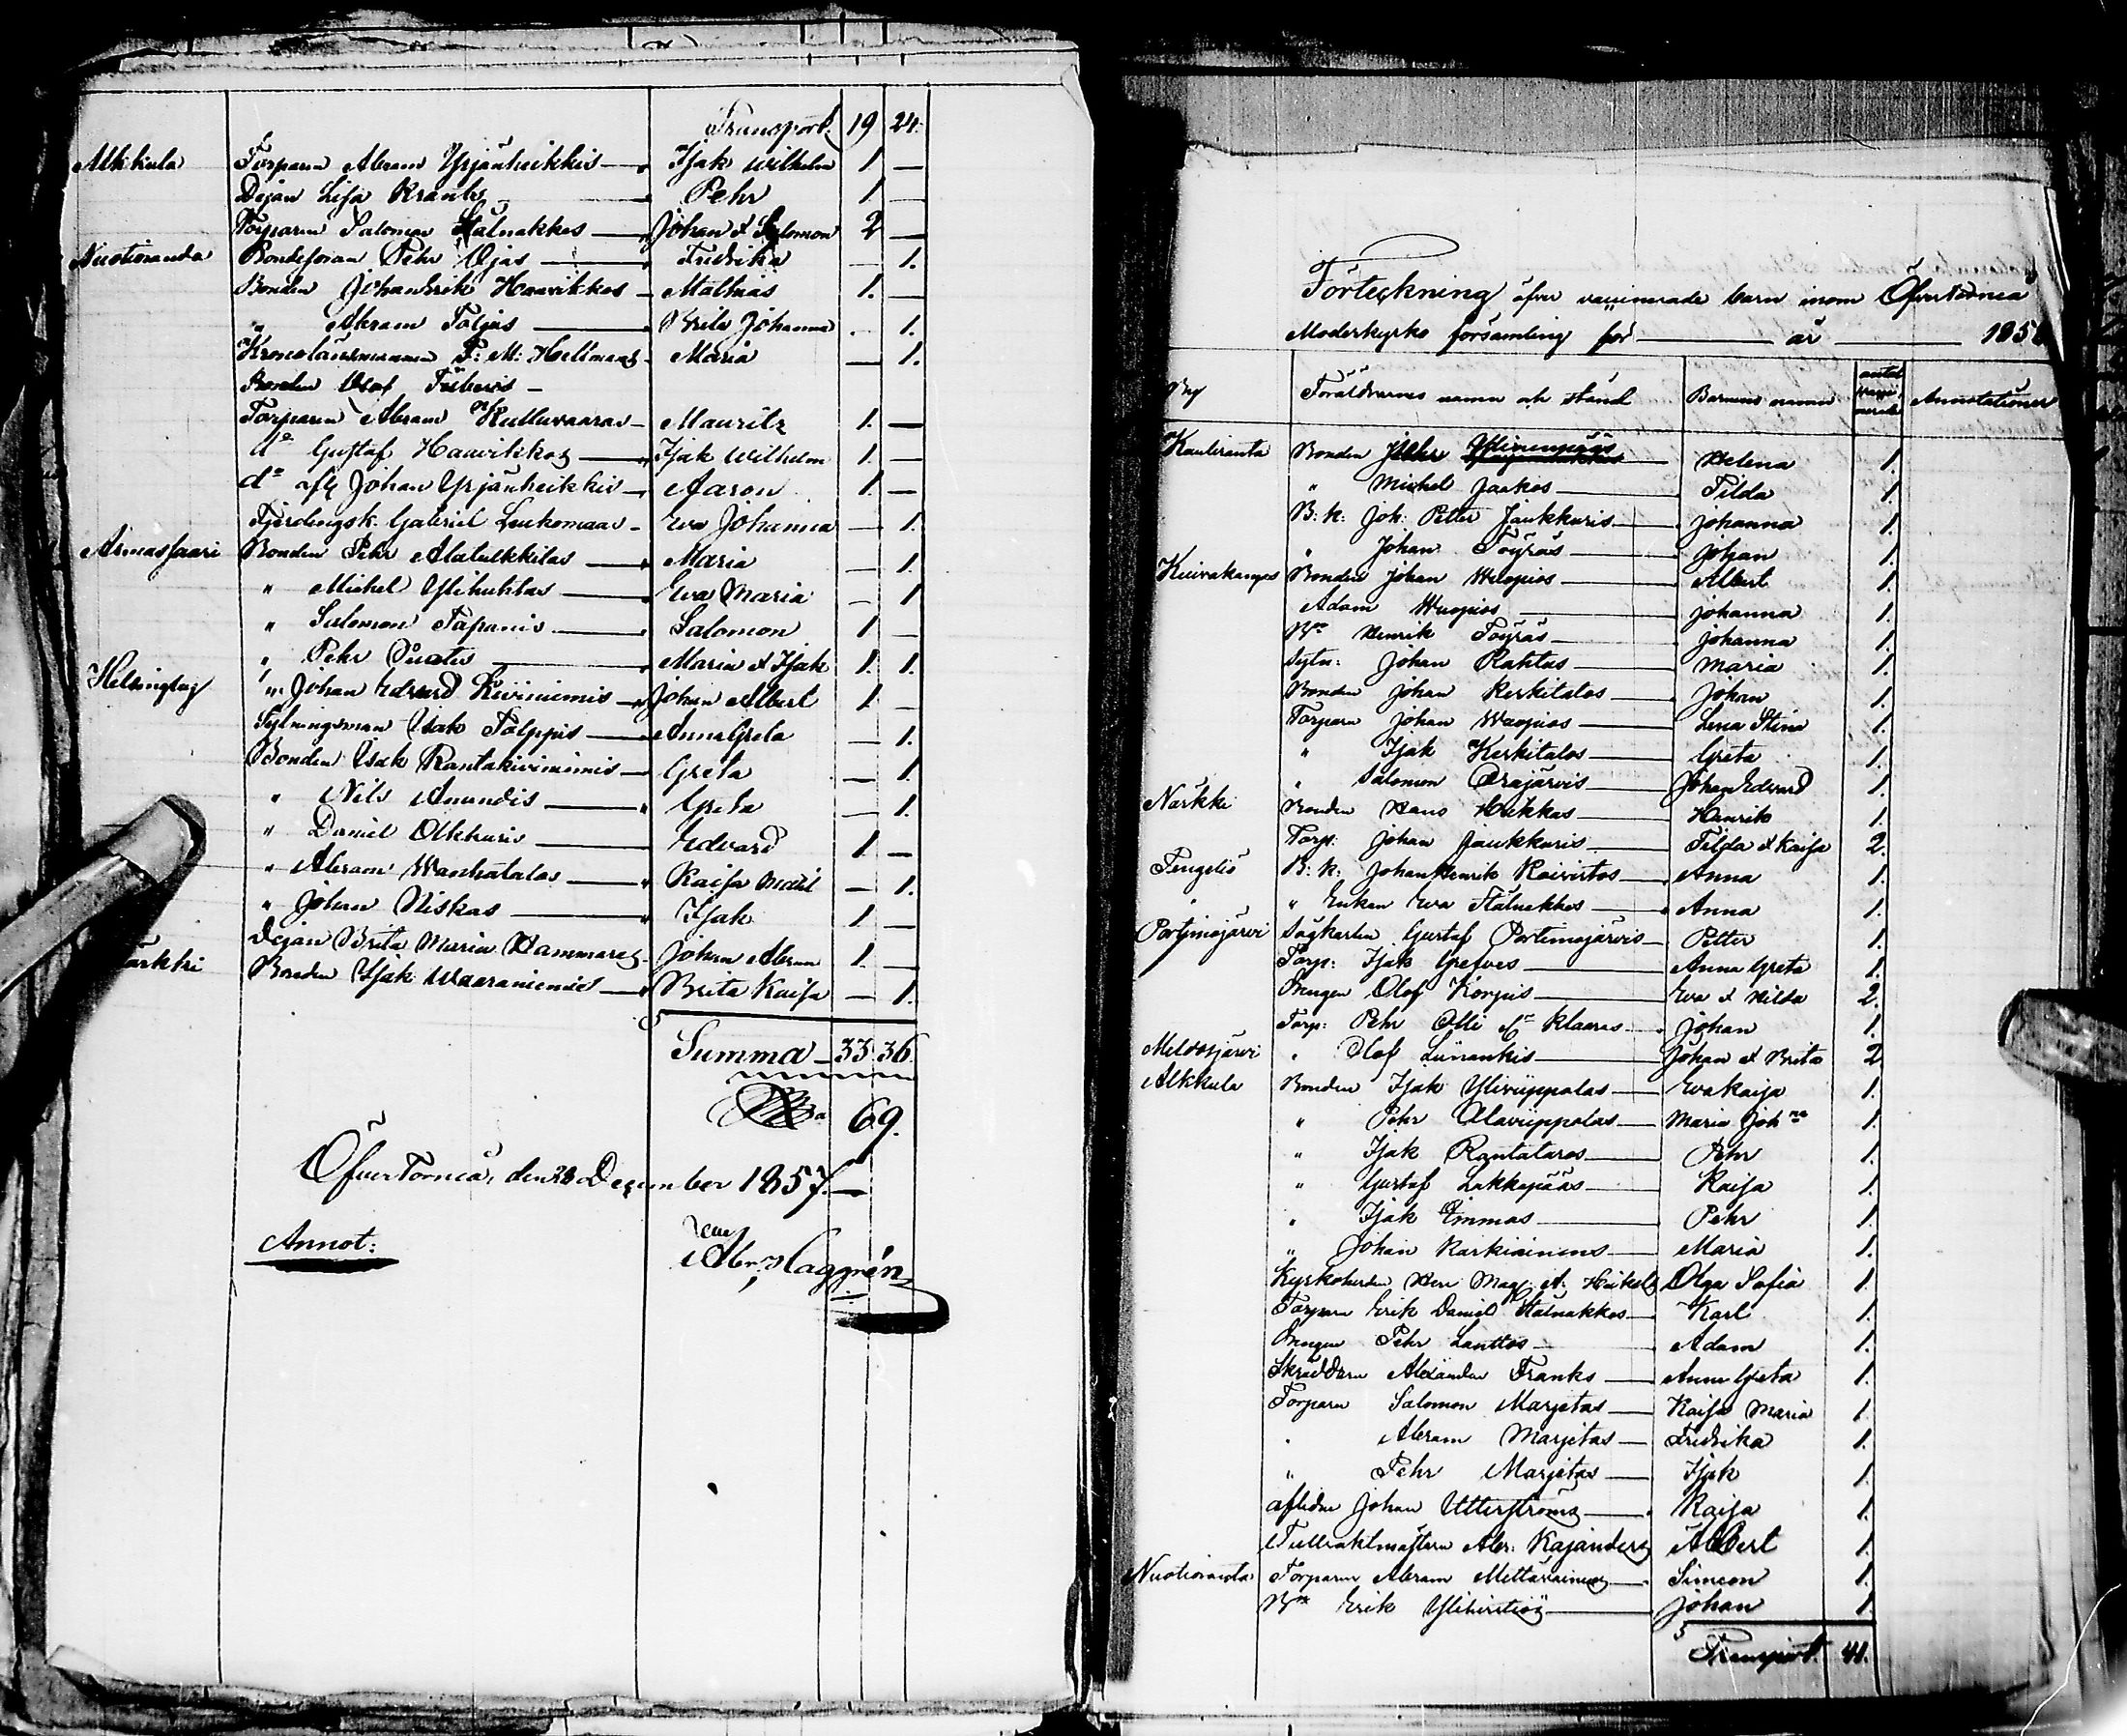 Transport. 19 24.
Alkkula Torparen Abram Yrjänheikkis Isak Wilhelm 1 —
Dejan Lisa Krantz Pehr 1 —
Torparen Salomon Stålnakkes Johan & Salomon 2 —
Nuotioranda Bondesonen Pehr Ojas Fredrika — 1.
Bonden Johan Erik Haavikkos Mathias 1. —
" Abram Toljas Brita Johanna . 1.
Kronolänsmannen P: M: Hellmans Maria — 1.
Bonden Olof
Torparen Abram Kulluvaaras Mauritz 1. —
d:o Gustaf Haavikkos Isak Wilhelm 1. —
d:o afl Johan Yrjänheikkis Aaron 1. —
Fjerdingsk. Gabriel Laukomaas Eva Johanna — 1.
Armassaari Bonden Pehr Alatulkkilas Maria — 1.
" Michel Ylihuhtas Eva Maria — 1
" Salomon Tapanis Salomon 1 —
" Pehr Maria & Isak 1. 1.
Helsingby " Johan Edvard Kiviniemis Johan Albert 1 —
Sytningsman Isak Tolppis Anna Greta — 1.
Bonden Isak Rantakiviniemis Greta — 1
" Nils Anundis Greta — 1.
" Daniel Olkkuris Edvard 1. —
" Abram Wanhatalos Kaisa — 1.
" Johan Niskas Isak 1 —
Dejan Brita Maria Hammars Johan Abram 1 —
Närkki Bonden Isak Waaraniemis Brita Kaisa — 1.
Summa 33. 36.
69.
Öfver Torneå, den 28 December 1857.
Annot: Abr. Haggrén
Förteckning öfver vaccinerade barn inom Öfvertorneå
Moderkyrko församling för år 1858
By Föräldrarnes namn och stånd Barnens namn antal vacci- nerade Annotationer
Kauliranta Bonden Pehr Ylinenpääs Helena 1.
" Michel Jaakos Tilda 1.
B: k: Joh: Petter Jaukkuris Johanna 1.
" Johan Töyräs Johan 1.
Kuivakangas Bonden Johan Huopios Albert 1.
Adam Huopios Johanna 1.
B:n Henrik Töyräs Johanna 1.
Sytn: Johan Rahtus Maria 1.
Bonden Johan Kerkitalos Johan 1.
Torparn Johan Waopios Lena Stina 1.
" Isak Kerkitalos Greta 1.
" Salomon Orajärvis Johan Edvard 1.
Närkki Bonden Hans Hukkas Henrik 1.
Torp: Johan Jaukkuris Tilda & Kaisa 2.
Tengeliö B: k: Johan Henrik Koivistos Anna 1.
" Enkan Eva Stålnakkes Anna 1.
Portimojärvi Sågkarlen Gustaf Portimojärvis Petter 1.
Torp: Isak Grefves Anna Greta 1.
Drengen Olof Korpis Eva & Hilda 2.
Torp: Pehr Olli el:r Klaaras Johan 1.
Meldosjärvi " Olof Liinankis Johan & Brita 2
Alkkula Bonden Isak Yliviippolas Eva Kaisa 1.
" Pehr Alaviippolas Maria Joh:na 1.
" Isak Rantataros Pehr 1.
" Gustaf Lakkapääs Kaisa 1.
" Isak Emmas Pehr 1.
" Johan Karkiainens Maria 1.
Kyrkoherden Herr Mag: A. Heikels Olga Sofia 1.
Torparn Erik Daniel Stålnakkes Karl 1.
Drengen Pehr Lanttos Adam 1.
Skräddarn Alexander Franks Anna Greta 1.
Torparn Salomon Marjetas Kaisa Maria 1.
" Abram Marjetas Fredrika 1.
" Pehr Marjetas Isak 1.
aflidne Johan Utterströms Kaisa 1.
Tullvaktmästarn Abr: Kajanders Albert 1.
Nuotioranta Torparen Abram Mettäväinens Simeon 1.
B:n Erik Johan 1.
Transport 41.